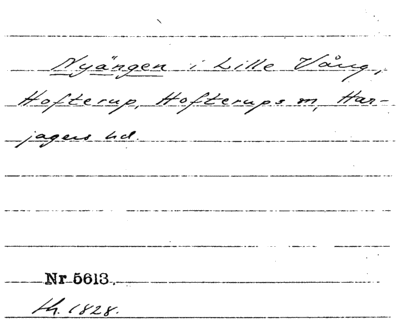 Nyängen i Lille Vång,
Hofterup, Hofterups m, Har-
jagers hd.
Nr 5613.
th. 1828.